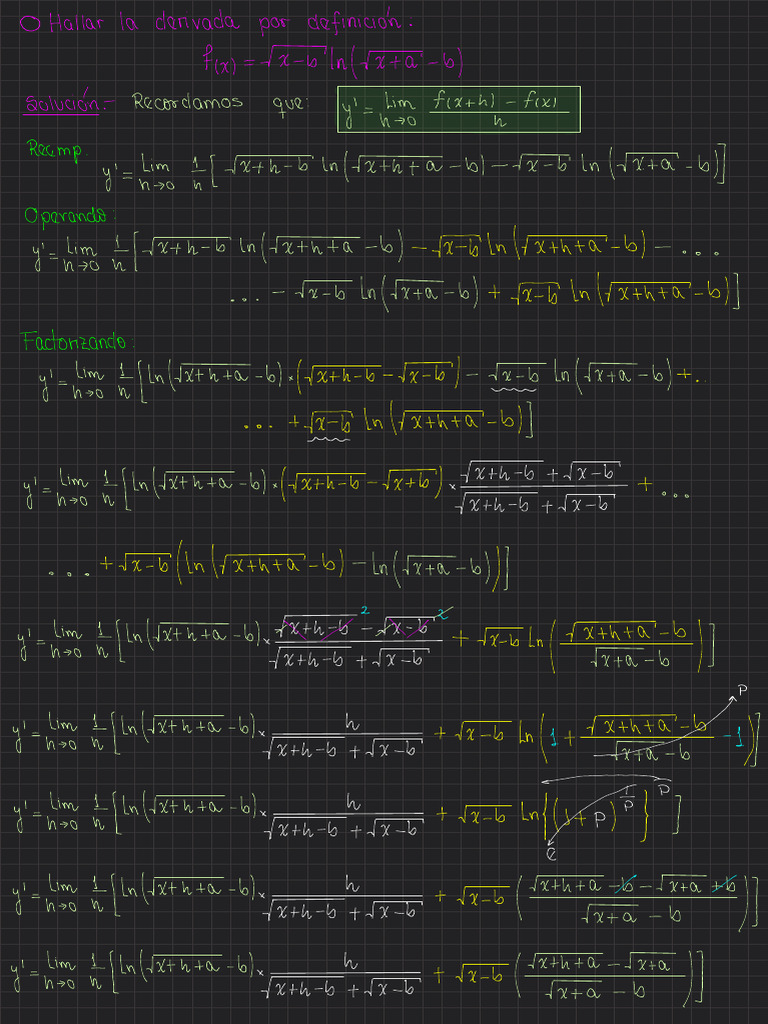 O Hallar la derivada por definición.
f(x) = √(x-b) ln(√(x+a) - b)
Solución.- Recordamos que: y' = lim h→0 (f(x+h) - f(x))/h
Reemp.
y' = lim h→0 1/h [√(x+h-b) ln(√(x+h+a) - b) - √(x-b) ln(√(x+a) - b)]
Operando:
y' = lim h→0 1/h [√(x+h-b) ln(√(x+h+a) - b) - √(x-b) ln(√(x+h+a) - b) - ...
... - √(x-b) ln(√(x+a) - b) + √(x-b) ln(√(x+h+a) - b)]
Factorizando:
y' = lim h→0 1/h [ln(√(x+h+a) - b) * (√(x+h-b) - √(x-b)) - √(x-b) ln(√(x+a) - b) + ..
... + √(x-b) ln(√(x+h+a) - b)]
y' = lim h→0 1/h [ln(√(x+h+a) - b) * (√(x+h-b) - √(x+b)) * (√(x+h-b) + √(x-b))/(√(x+h-b) + √(x-b)) + ...
... + √(x-b) (ln(√(x+h+a) - b) - ln(√(x+a) - b))]
y' = lim h→0 1/h [ln(√(x+h+a) - b) * (√(x+h-b)² - √(x-b)²)/(√(x+h-b) + √(x-b)) + √(x-b) ln((√(x+h+a) - b)/(√(x+a) - b))]
y' = lim h→0 1/h [ln(√(x+h+a) - b) * h/(√(x+h-b) + √(x-b)) + √(x-b) ln(1 + (√(x+h+a) - b)/(√(x+a) - b) - 1)] P
y' = lim h→0 1/h [ln(√(x+h+a) - b) * h/(√(x+h-b) + √(x-b)) + √(x-b) ln{(1+P)^(1/P)}^P] e
y' = lim h→0 1/h [ln(√(x+h+a) - b) * h/(√(x+h-b) + √(x-b)) + √(x-b) ((√(x+h+a) - b - √(x+a) + b)/(√(x+a) - b))]
y' = lim h→0 1/h [ln(√(x+h+a) - b) * h/(√(x+h-b) + √(x-b)) + √(x-b) ((√(x+h+a) - √(x+a))/(√(x+a) - b))]